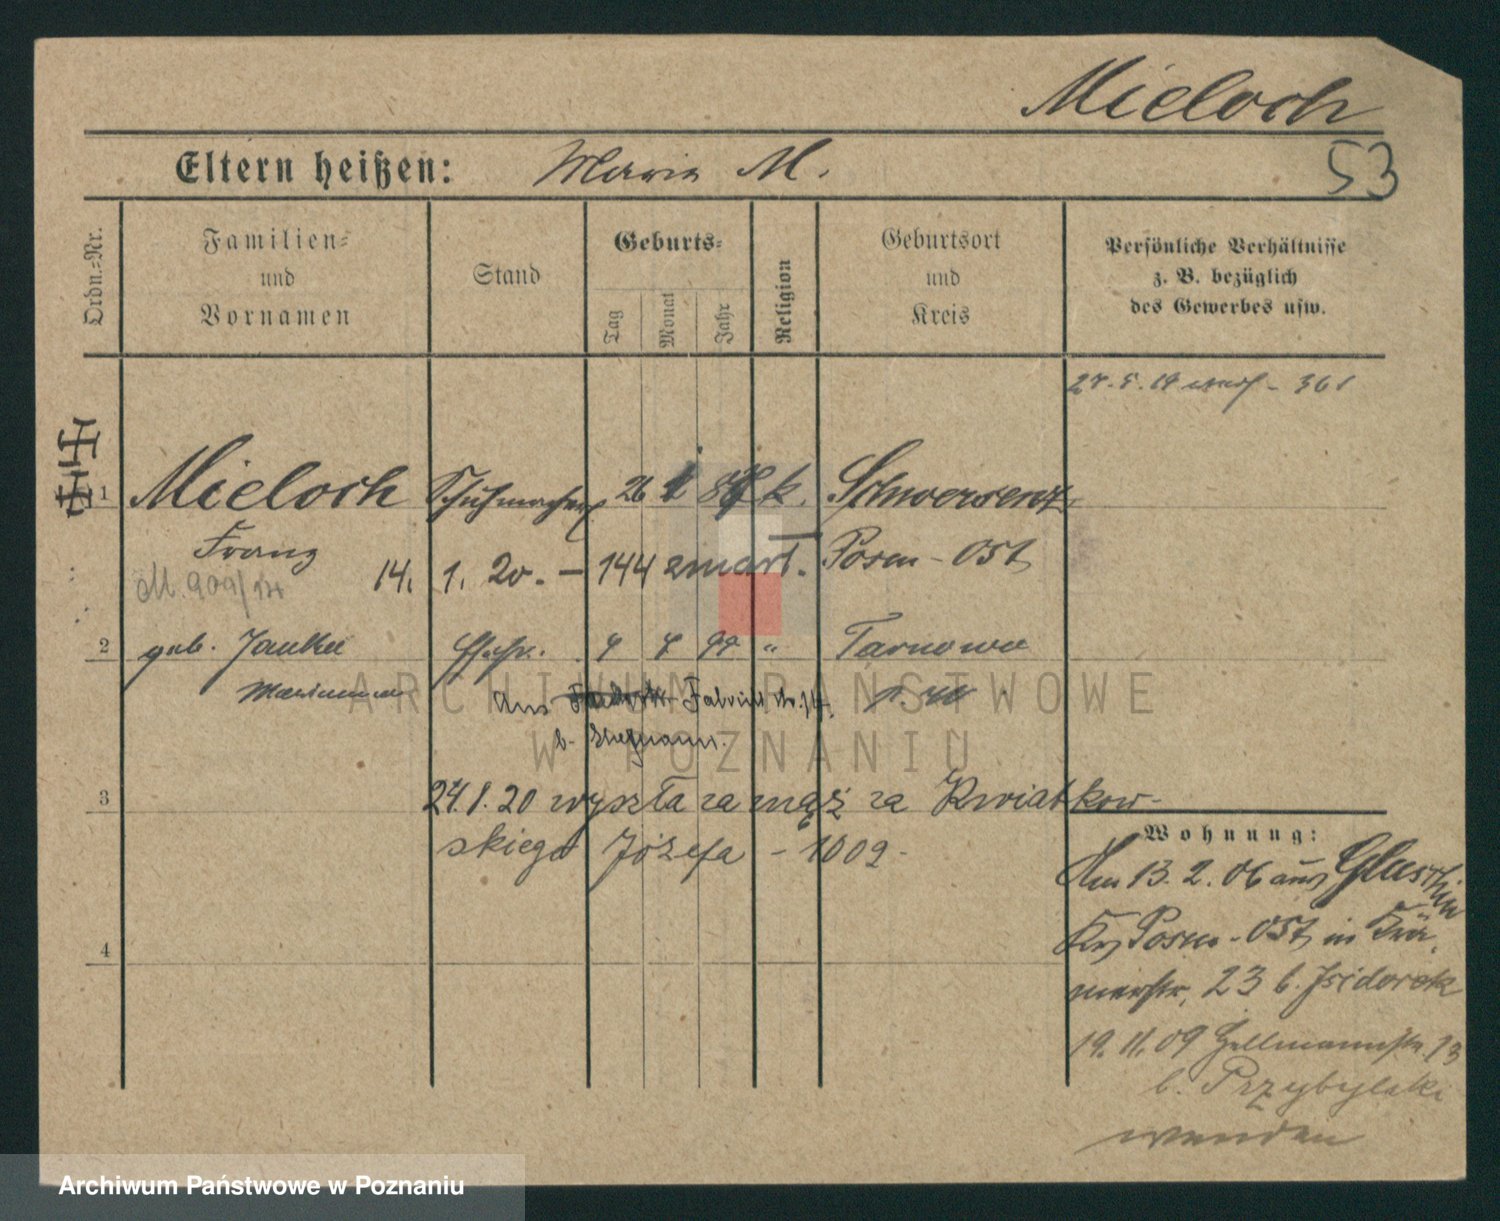 Mieloch
53
Eltern heißen: Maria M.
Ordn.-Nr.
Familien- und Vornamen
Stand
Geburts-
Tag
Monat
Jahr
Religion
Geburtsort und Kreis
Persönliche Verhältnisse z. B. bezüglich des Gewerbes usw.
27. 5. 19 - 361
1 Mieloch Schuhmacher 26 k. Schwersenz
Franz Posen-Ost
14. 1. 20. - 144 zmarł.
M. 909/14
2 geb. Janka Ehefr. 4 4 " Tarnowo
Marianna
Aus Fabrikstr. 14.
b.
3 24.1.20 wyszła za mąż za Kwiatkow-
skiego Józefa - 1009 -
4
Wohnung:
Am 13. 2. 06 aus
Kr. Posen-Ost in Krä-
merstr. 23 b. Isidorek
19. 11. 09 Hellmannstr. 13
b. Przybylski
wenden
ARCHIWUM PAŃSTWOWE
W POZNANIU
Archiwum Państwowe w Poznaniu